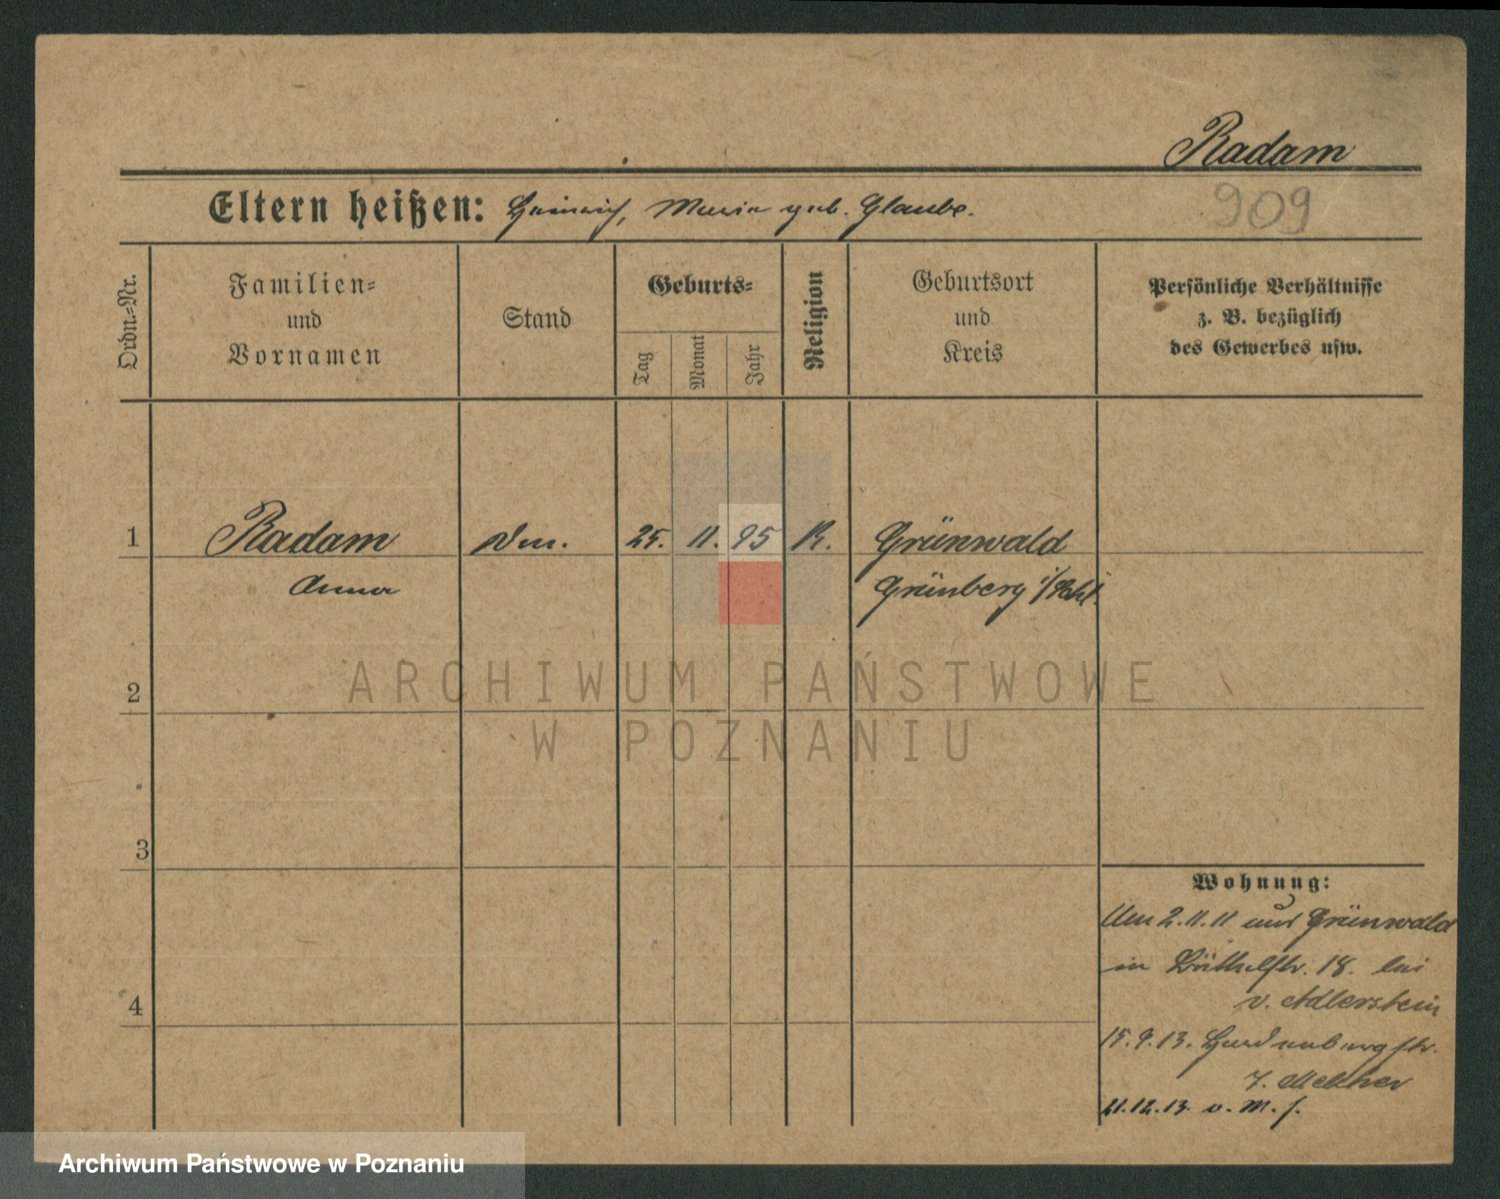 Radam
Eltern heißen: Heinrich, Maria geb. Glaube.
909
Ordn.-Nr.
Familien-
und
Vornamen
Stand
Geburts-
Tag
Monat
Jahr
Religion
Geburtsort
und
Kreis
Persönliche Verhältnisse
z. B. bezüglich
des Gewerbes usw.
1 Radam 25. 11. 95 K. Grünwald
Anna Grünberg i/Schl.
2
ARCHIWUM PAŃSTWOWE
W POZNANIU
3
Wohnung:
2.11.11 aus Grünwald
in 18. bei
4
v. Adlerstein
15.9.13. Hardenburgstr.
7.
21.12.13 v. M. f.
Archiwum Państwowe w Poznaniu